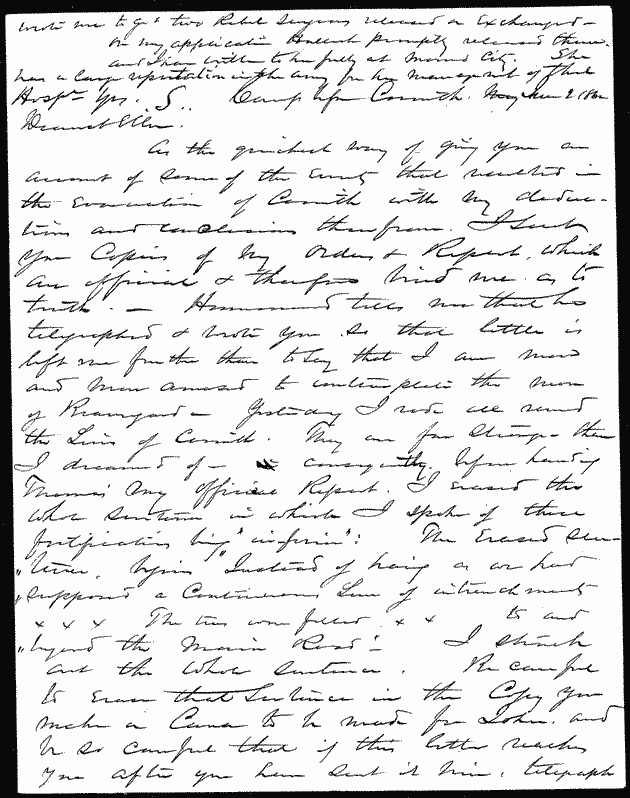 wrote me to get two Rebel Surgeons released or Exchanged —
on my application Halleck promptly released them.
and I have written to her fully at Mound City. She
has a large reputation in the army for her management of
Hosp. Yrs. S. Camp before Corinth. June 2. 1862
Dearest Ellen.
As the quickest way of giving you an
account of some of the Events that resulted in
the Evacuation of Corinth with my deduc-
tions and conclusions therefrom. I send
you Copies of my orders & Report, which
are official & therefore bind me as to
truth. — Hammond tells me that he
telegraphed & wrote you so that little is
left me further than to say that I am more
and more amazed to contemplate the move
of Beauregard — Yesterday I rode all round
the Lines of Corinth. They are far stronger than
I dreamed of — consequently before handing
Thomas my official Report. I Erased the
whole sentence in which I spoke of these
fortifications being "inferior": The Erased Sen-
"tence, begins "Instead of having as we had
"supposed a Continuous Line of intrenchments
x x x The trees were felled x x to and
"beyond the Main Road" — I struck
out the whole sentence. Be careful
to Erase that Sentence in the Copy you
make or Cause to be made for John. and
be so careful that if this letter reaches
you after you have sent it him, telegraph